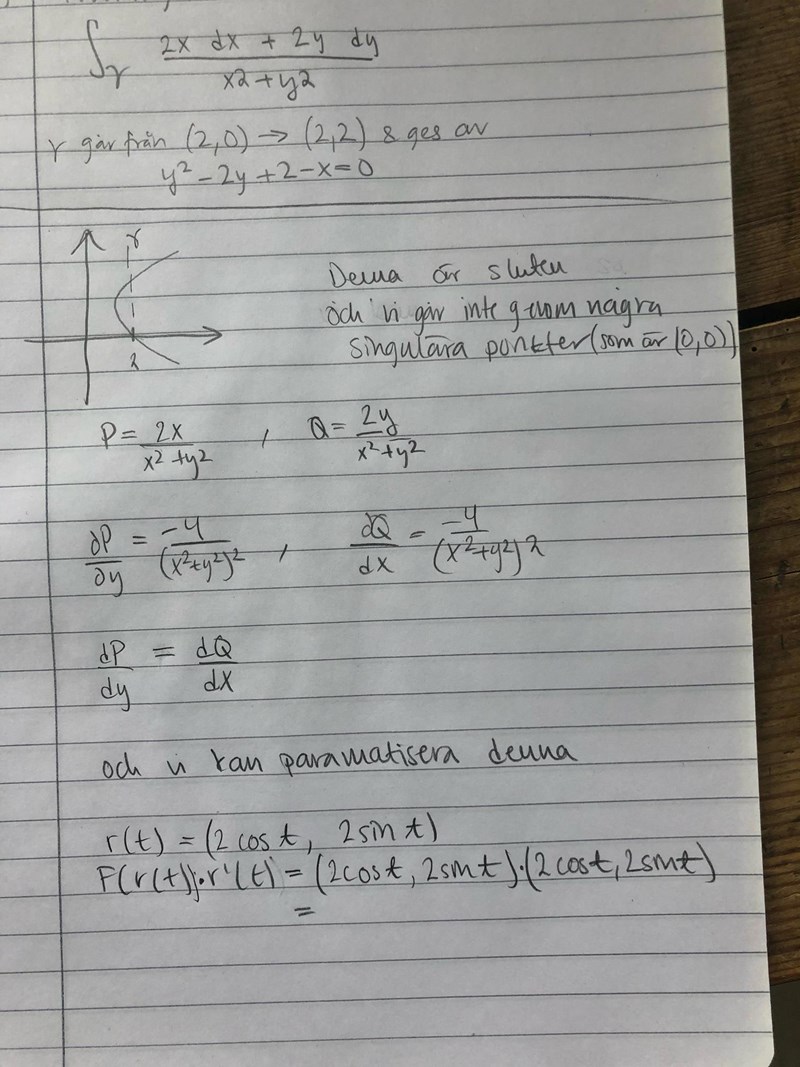 ∫γ (2x dx + 2y dy) / (x2+y2)
γ går från (2,0) → (2,2) & ges av
y² - 2y + 2 - x = 0
γ
2
Denna är sluten
och vi går inte genom några
singulära punkter (som är (0,0))
P = 2x / (x² + y²) , Q = 2y / (x² + y²)
∂P/∂y = -4 / (x²+y²)² , dQ/dx = -4 / (x²+y²)2
dP/dy = dQ/dx
och vi kan paramatisera denna
r(t) = (2 cos t, 2 sin t)
F(r(t))·r'(t) = (2cost, 2sint)·(2cost, 2sint)
=